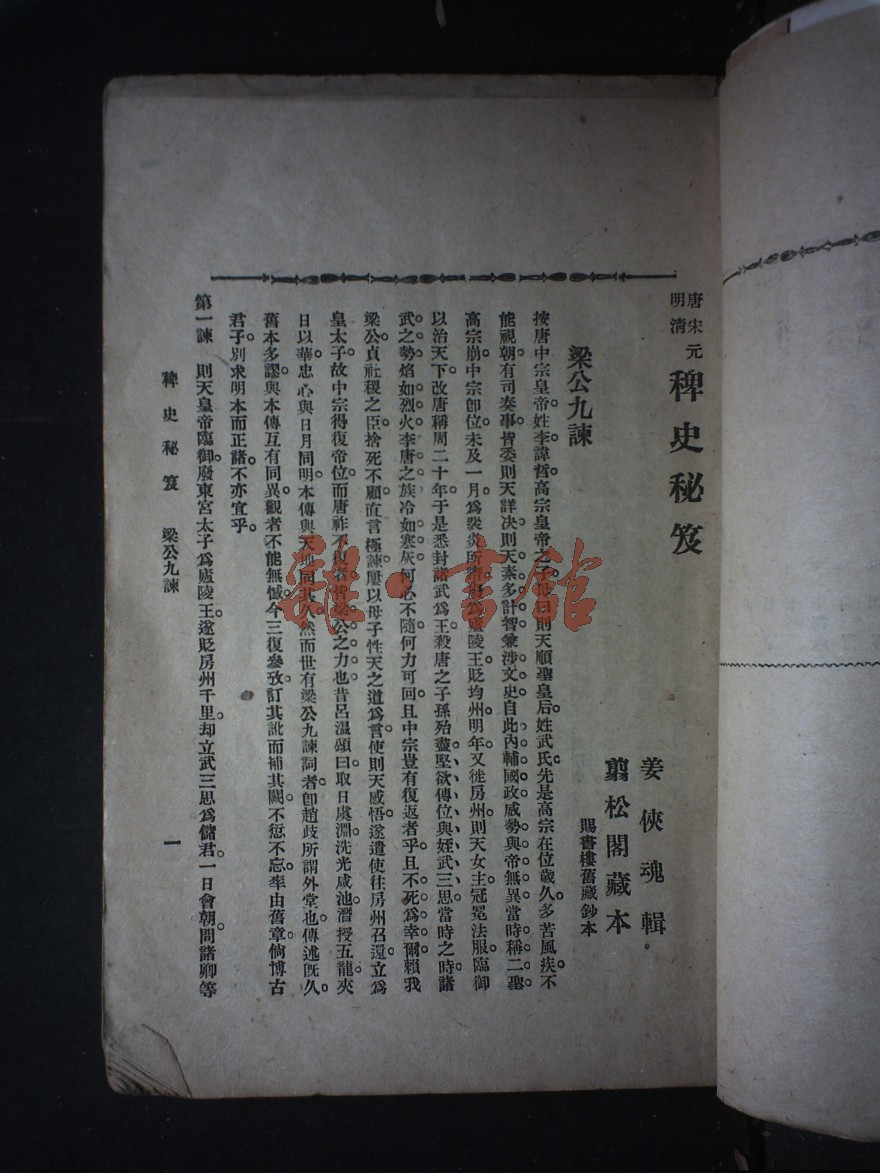 唐宋元明清 稗史秘笈
姜俠魂輯
翦松閣藏本
賜書樓舊藏鈔本
梁公九諫
按唐中宗皇帝姓李諱哲。高宗皇帝之子。母曰則天順聖皇后。姓武氏。先是高宗在位歲久。多苦風疾。不
能視朝。有司奏事。皆委則天詳决。則天素多計智。兼涉文史。自此內輔國政。威勢與帝無異。當時稱二聖。
高宗崩。中宗卽位。未及一月。爲裴炎所
爲廬陵王。貶均州。明年又徙房州。則天女主。冠冕法服。臨御
以治天下。改唐稱周二十年。于是悉封諸武爲王。殺唐之子孫殆盡。堅欲傳位與姪武三思。當時之時。諸
武之勢。焰如烈火。李唐之族。冷如寒灰。何心不隨。何力可回。且中宗豈有復返者乎。且不死爲幸爾。賴我
梁公貞社稷之臣。捨死不顧。直言極諫。屢以母子性天之道爲言。使則天感悟。遂遣使往房州召還。立爲
皇太子。故中宗得復帝位。而唐祚不
者。皆梁公之力也。昔呂溫頌曰。取日虞淵。洗光咸池。潛授五龍。夾
日以
華忠心與日月同明。本傳與天地同其久。然而世有梁公九諫詞者。卽趙歧所謂外堂也。傳述旣久。
舊本多謬。與本傳互有同異。觀者不能無憾。今三復參攷。訂其訛而補其闕。不愆不忘。率由舊章。倘博古
君子。別求明本而正諸。不亦宜乎。
第一諫　則天皇帝臨御。廢東宮太子爲廬陵王。遂貶房州千里。却立武三思爲儲君。一日會朝。問諸卿等
稗史秘笈　梁公九諫　一
雅·書館